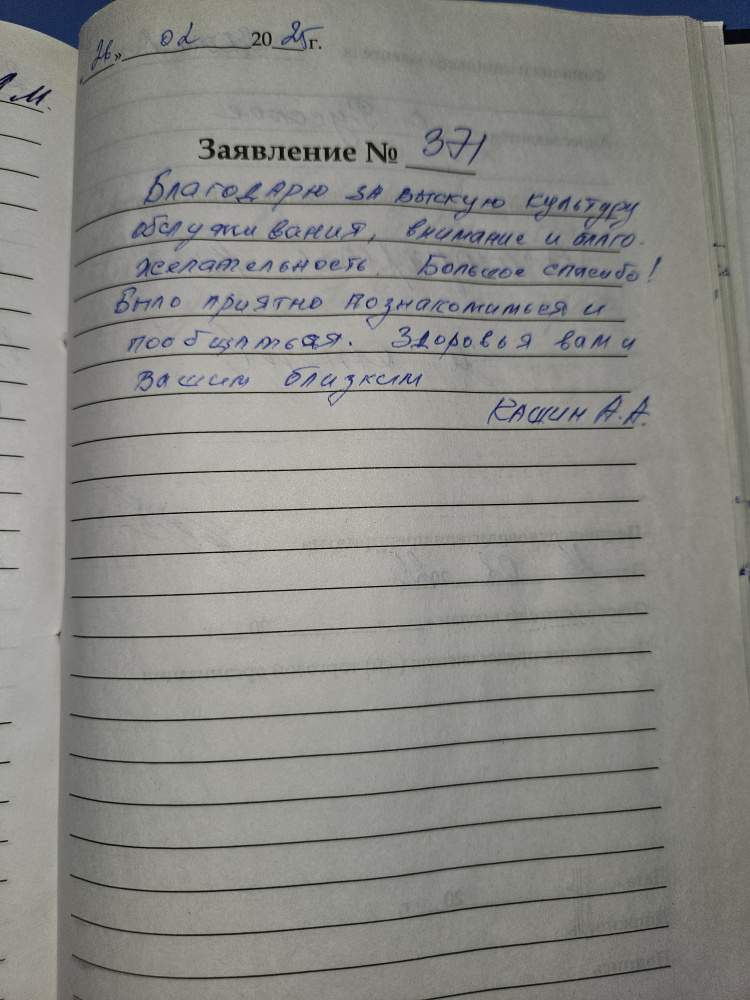 26» 02 2025 г.
Заявление № 371
Благодарю за выскую культуру
обслуживания, внимание и благо-
желательность. Большое спасибо!
Было приятно познакомиться и
пообщаться. Здоровья вам и
вашим близким
Кашин А.А.